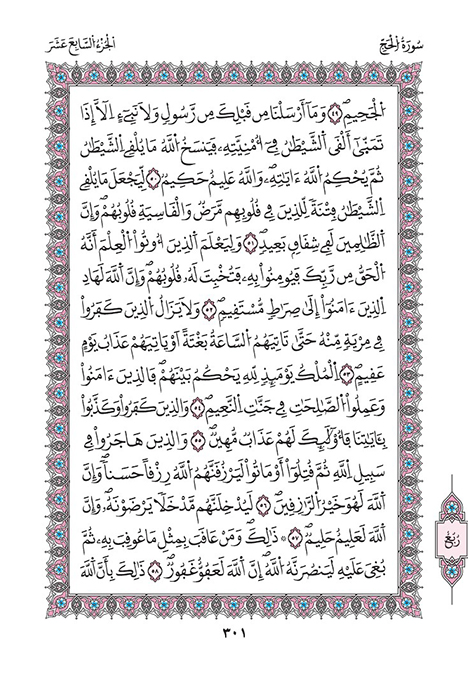 سُورَةُ الْحَجِّ
الْجُزْءُ السَّابِعَ عَشَرَ
الْجَحِيمِ ٤٩ وَمَا أَرْسَلْنَا مِن قَبْلِكَ مِن رَّسُولٍ وَلَا نَبِيٓءٍ اِلَّا إِذَا
تَمَنَّىٰ أَلْقَى الشَّيْطَٰنُ فِي أُمْنِيَّتِهِ فَيَنسَخُ اللَّهُ مَا يُلْقِي الشَّيْطَٰنُ
ثُمَّ يُحْكِمُ اللَّهُ ءَايَٰتِهِ وَاللَّهُ عَلِيمٌ حَكِيمٌ ٥٠ لِّيَجْعَلَ مَا يُلْقِي
الشَّيْطَٰنُ فِتْنَةً لِّلَّذِينَ فِي قُلُوبِهِم مَّرَضٌ وَالْقَاسِيَةِ قُلُوبُهُمْ وَإِنَّ
الظَّٰلِمِينَ لَفِي شِقَاقٍ بَعِيدٍ ٥١ وَلِيَعْلَمَ الَّذِينَ أُوتُوا الْعِلْمَ أَنَّهُ
الْحَقُّ مِن رَّبِّكَ فَيُومِنُوا بِهِ فَتُخْبِتَ لَهُ قُلُوبُهُمْ وَإِنَّ اللَّهَ لَهَادِ
الَّذِينَ ءَامَنُوا إِلَىٰ صِرَٰطٍ مُّسْتَقِيمٍ ٥٢ وَلَا يَزَالُ الَّذِينَ كَفَرُوا
فِي مِرْيَةٍ مِّنْهُ حَتَّىٰ تَاتِيَهُمُ السَّاعَةُ بَغْتَةً اَوْ يَاتِيَهُمْ عَذَابُ يَوْمٍ
عَقِيمٍ ٥٣ اِلْمُلْكُ يَوْمَئِذٍ لِّلَّهِ يَحْكُمُ بَيْنَهُمْ فَالَّذِينَ ءَامَنُوا
وَعَمِلُوا الصَّٰلِحَٰتِ فِي جَنَّٰتِ النَّعِيمِ ٥٤ وَالَّذِينَ كَفَرُوا وَكَذَّبُوا
بِـَٔايَٰتِنَا فَأُوْلَٰٓئِكَ لَهُمْ عَذَابٌ مُّهِينٌ ٥٥ وَالَّذِينَ هَاجَرُوا فِي
سَبِيلِ اللَّهِ ثُمَّ قُتِلُوا أَوْ مَاتُوا لَيَرْزُقَنَّهُمُ اللَّهُ رِزْقاً حَسَناً وَإِنَّ
اللَّهَ لَهُوَ خَيْرُ الرَّٰزِقِينَ ٥٦ لَيُدْخِلَنَّهُم مَّدْخَلاً يَرْضَوْنَهُ وَإِنَّ
اللَّهَ لَعَلِيمٌ حَلِيمٌ ٥٧ ۞ ذَٰلِكَ وَمَنْ عَاقَبَ بِمِثْلِ مَا عُوقِبَ بِهِ ثُمَّ
بُغِيَ عَلَيْهِ لَيَنصُرَنَّهُ اللَّهُ إِنَّ اللَّهَ لَعَفُوٌّ غَفُورٌ ٥٨ ذَٰلِكَ بِأَنَّ اللَّهَ
رُبُعْ
٣٠١